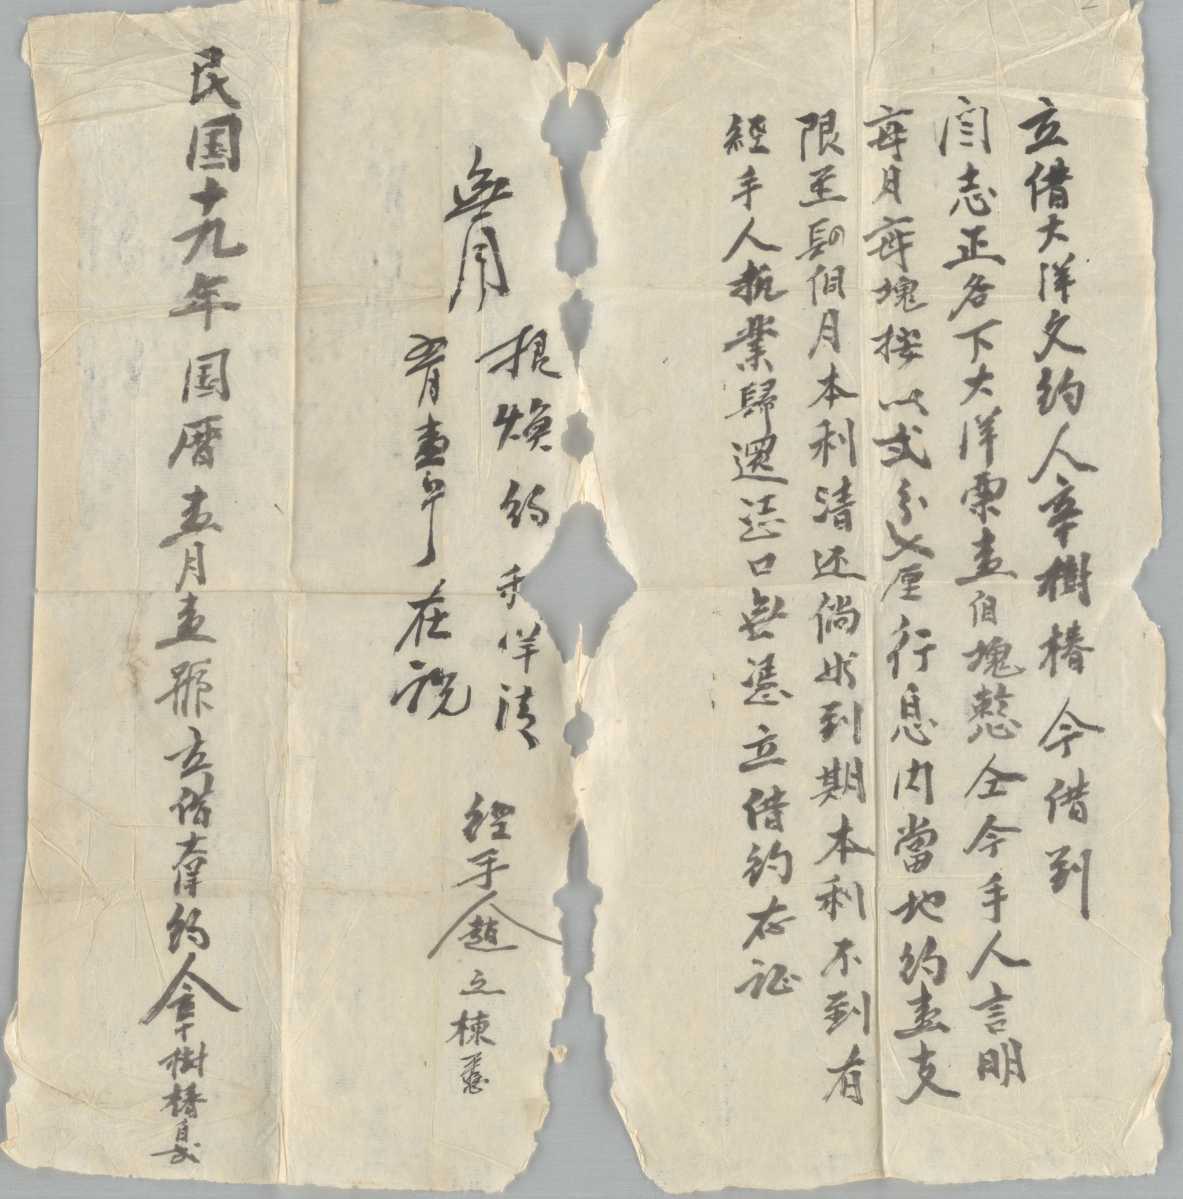 立借大洋文约人辛樹椿今借到
闫志正名下大洋票壹佰塊整仝今手人言明
每月每塊按以弍分〤厘行息内當地约壹支
限至 佰月本利清还倘若到期本利不到有
經手人抵業歸還 口無憑立借约存证
無用 抽焕约手洋清
五月壹年在説
经手人趙立棟
民国十九年国暦五月壹號立借大洋约人辛樹椿